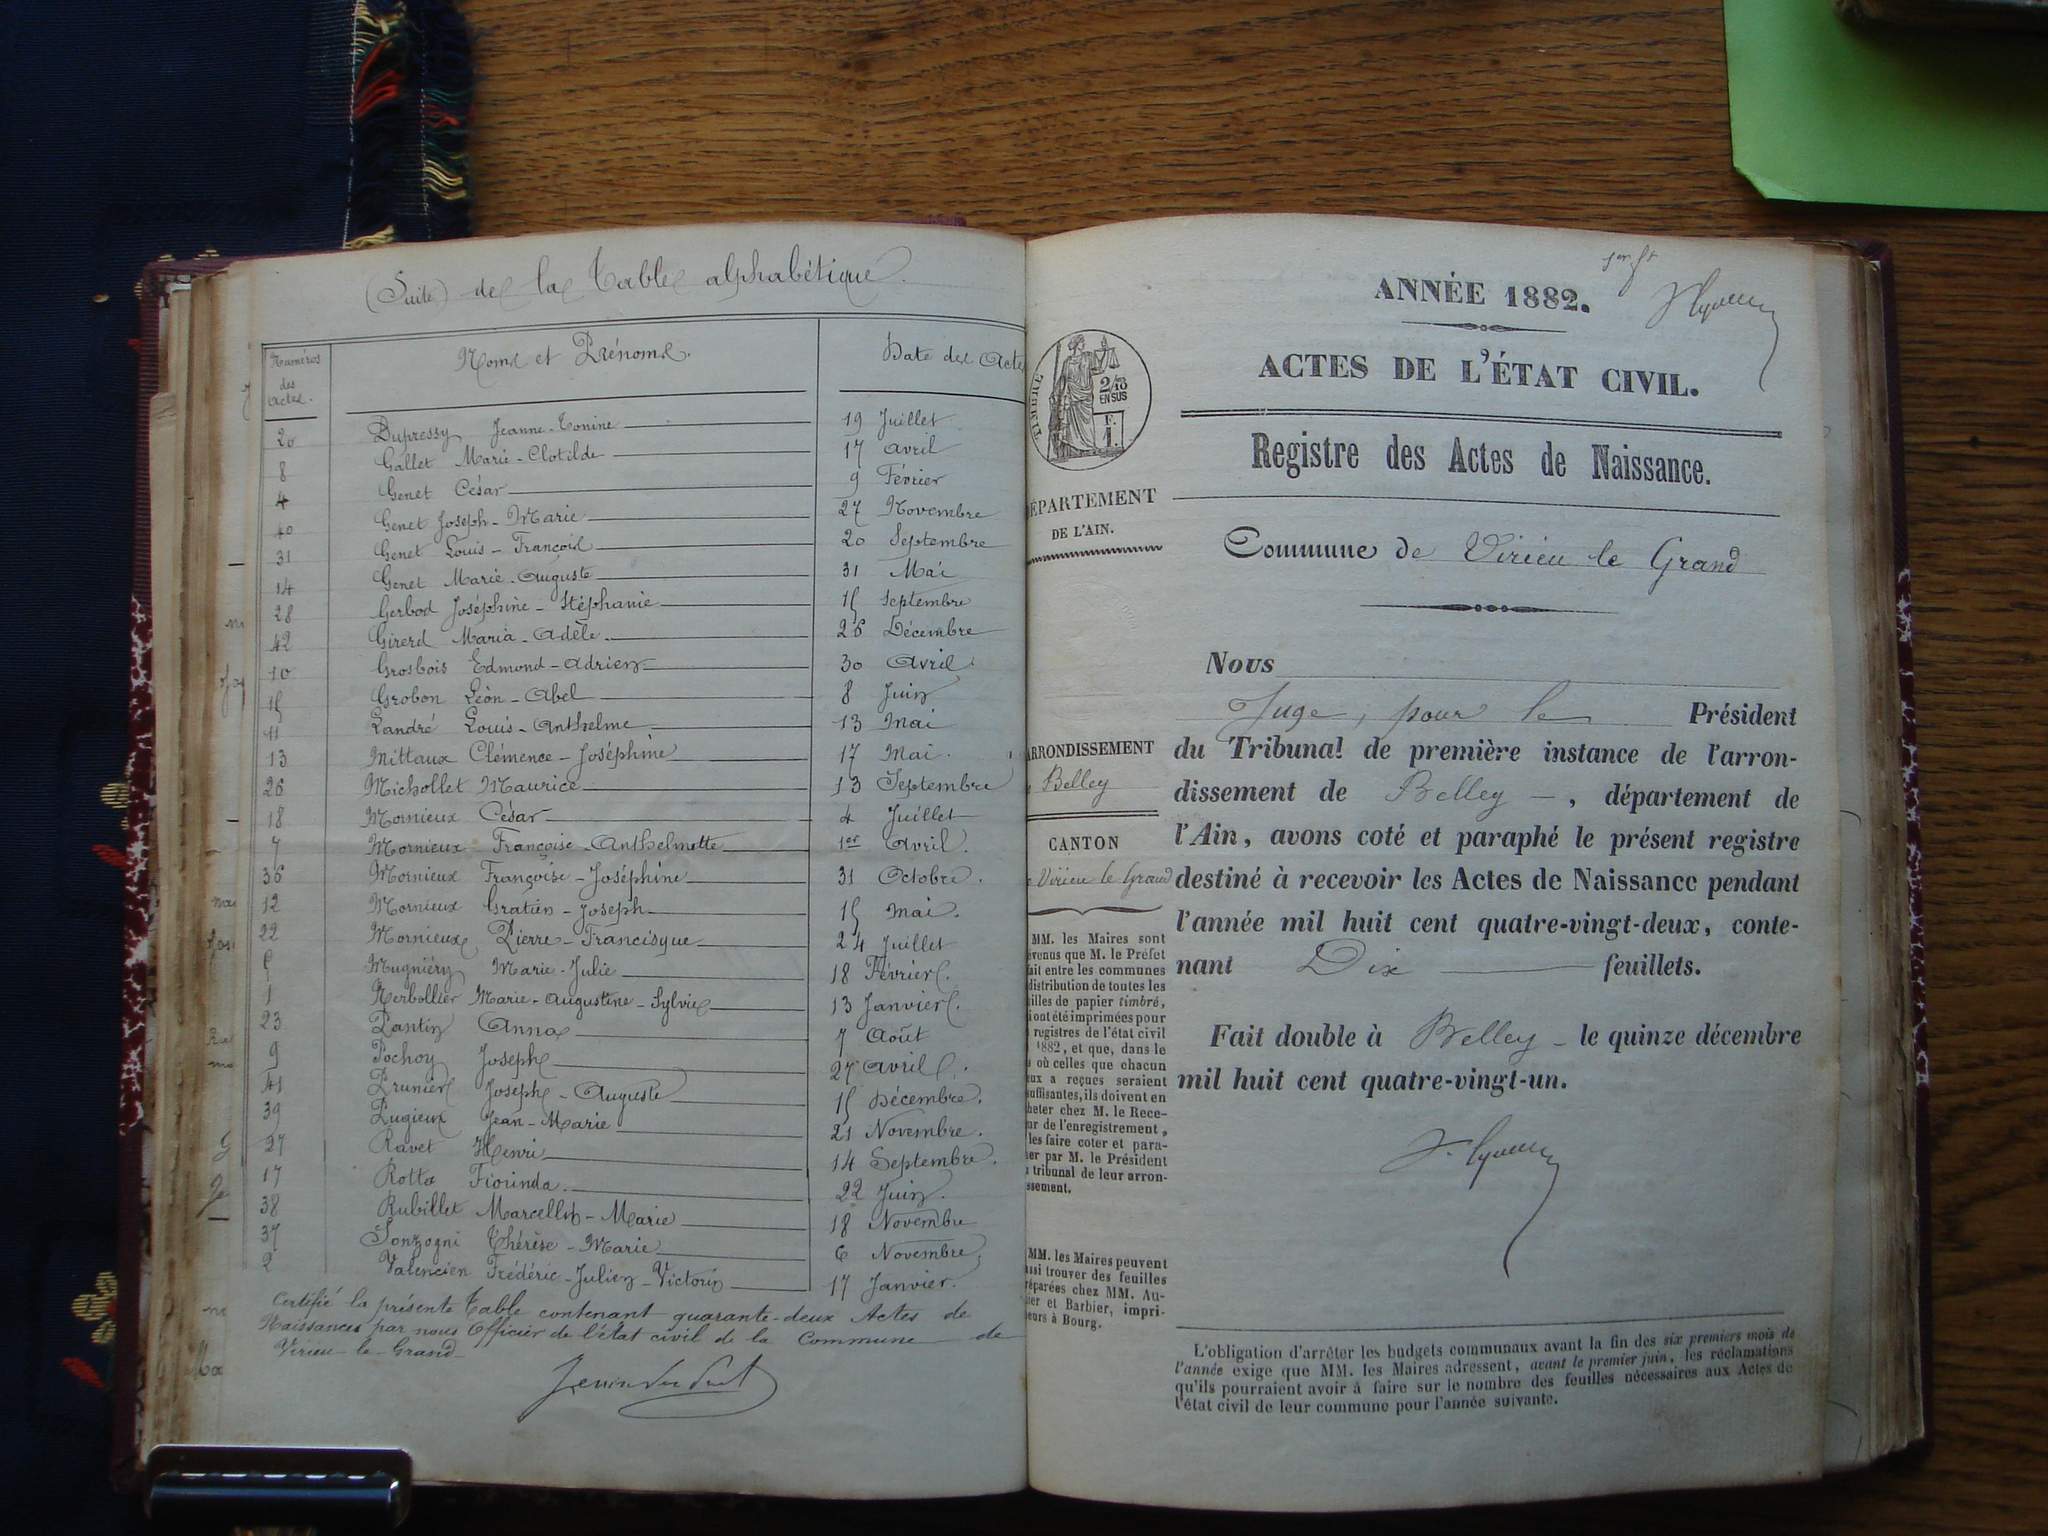 (Suite) de la Table alphabétique.
Numéros des Actes. Noms et Prénoms. Date des Actes
20 Dupressy Jeanne-Tonine 19 Juillet
8 Gallet Marie-Clotilde 17 Avril
4 Genet César 9 Février
40 Genet Joseph-Marie 27 Novembre
31 Genet Louis-François 20 Septembre
14 Genet Marie-Auguste 31 Mai
28 Gerbod Joséphine-Stéphanie 15 Septembre
42 Girerd Maria-Adèle 26 Décembre
10 Grosbois Edmond-Adrien 30 Avril
15 Grobon Léon-Abel 8 Juin
11 Landré Louis-Anthelme 13 Mai
13 Mittaux Clémence-Joséphine 17 Mai.
26 Michollet Maurice 13 Septembre
18 Mornieux César 4 Juillet
7 Mornieux Françoise-Anthelmette 1er Avril.
36 Mornieux Françoise-Joséphine 31 Octobre.
12 Mornieux Gratien-Joseph 15 Mai.
22 Mornieux Pierre-Francisque 24 Juillet
5 Mugniéry Marie-Julie 18 Février.
1 Nerbollier Marie-Augustine-Sylvie 13 Janvier.
23 Pantin Anna 7 Août
9 Pochoy Joseph 27 Avril.
41 Prunier Joseph-Auguste 15 Décembre.
39 Pugieux Jean-Marie 21 Novembre.
27 Ravet Henri 14 Septembre.
17 Rotta Fiorinda 22 Juin.
38 Rubillet Marcellin-Marie 18 Novembre
37 Sonzogni Thérèse-Marie 6 Novembre
2 Valencien Frédéric-Julien-Victorin 17 Janvier.
Certifié la présente Table contenant quarante-deux Actes de
Naissances par nous Officier de l'état civil de la Commune de
Virieu-le-Grand
ANNÉE 1882.
ACTES DE L'ÉTAT CIVIL.
TIMBRE
2/10
EN SUS
F.
1.
Registre des Actes de Naissance.
DÉPARTEMENT
DE L'AIN.
Commune de Virieu le Grand
Nous
Juge, pour le Président
du Tribunal de première instance de l'arron-
dissement de Belley, département de
l'Ain, avons coté et paraphé le présent registre
destiné à recevoir les Actes de Naissance pendant
l'année mil huit cent quatre-vingt-deux, conte-
nant Dix feuillets.
Fait double à Belley le quinze décembre
mil huit cent quatre-vingt-un.
RRONDISSEMENT
Belley
CANTON
Virieu le Grand
MM. les Maires sont
evenus que M. le Préfet
ait entre les communes
distribution de toutes les
illes de papier timbré,
i ont été imprimées pour
registres de l'état civil
1882, et que, dans le
où celles que chacun
eux a reçues seraient
uffisantes, ils doivent en
heter chez M. le Rece-
ur de l'enregistrement,
les faire coter et para-
er par M. le Président
tribunal de leur arron-
ssement.
MM. les Maires peuvent
ssi trouver des feuilles
réparées chez MM. Au-
ier et Barbier, impri-
eurs à Bourg.
L'obligation d'arrêter les budgets communaux avant la fin des six premiers mois de
l'année exige que MM. les Maires adressent, avant le premier juin, les réclamations
qu'ils pourraient avoir à faire sur le nombre des feuilles nécessaires aux Actes de
l'état civil de leur commune pour l'année suivante.